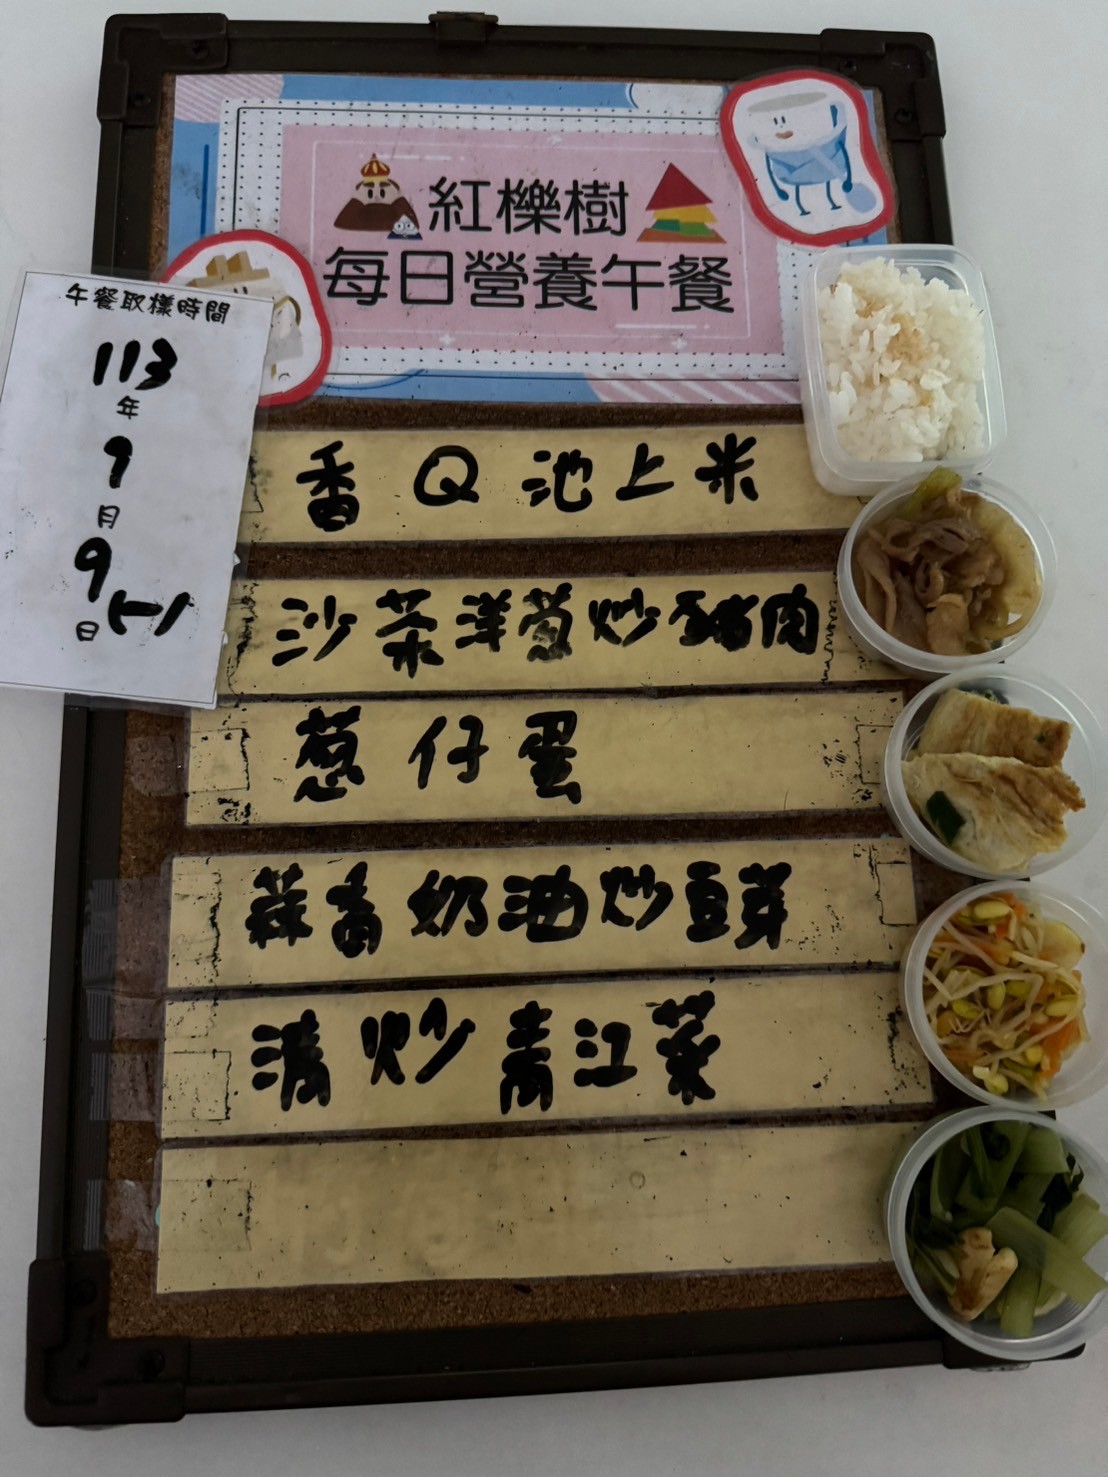 紅櫟樹
每日營養午餐
午餐取樣時間
113
年
9
月
9
日(一)
香Q池上米
沙茶洋蔥炒豬肉
蔥仔蛋
蒜香奶油炒豆芽
清炒青江菜